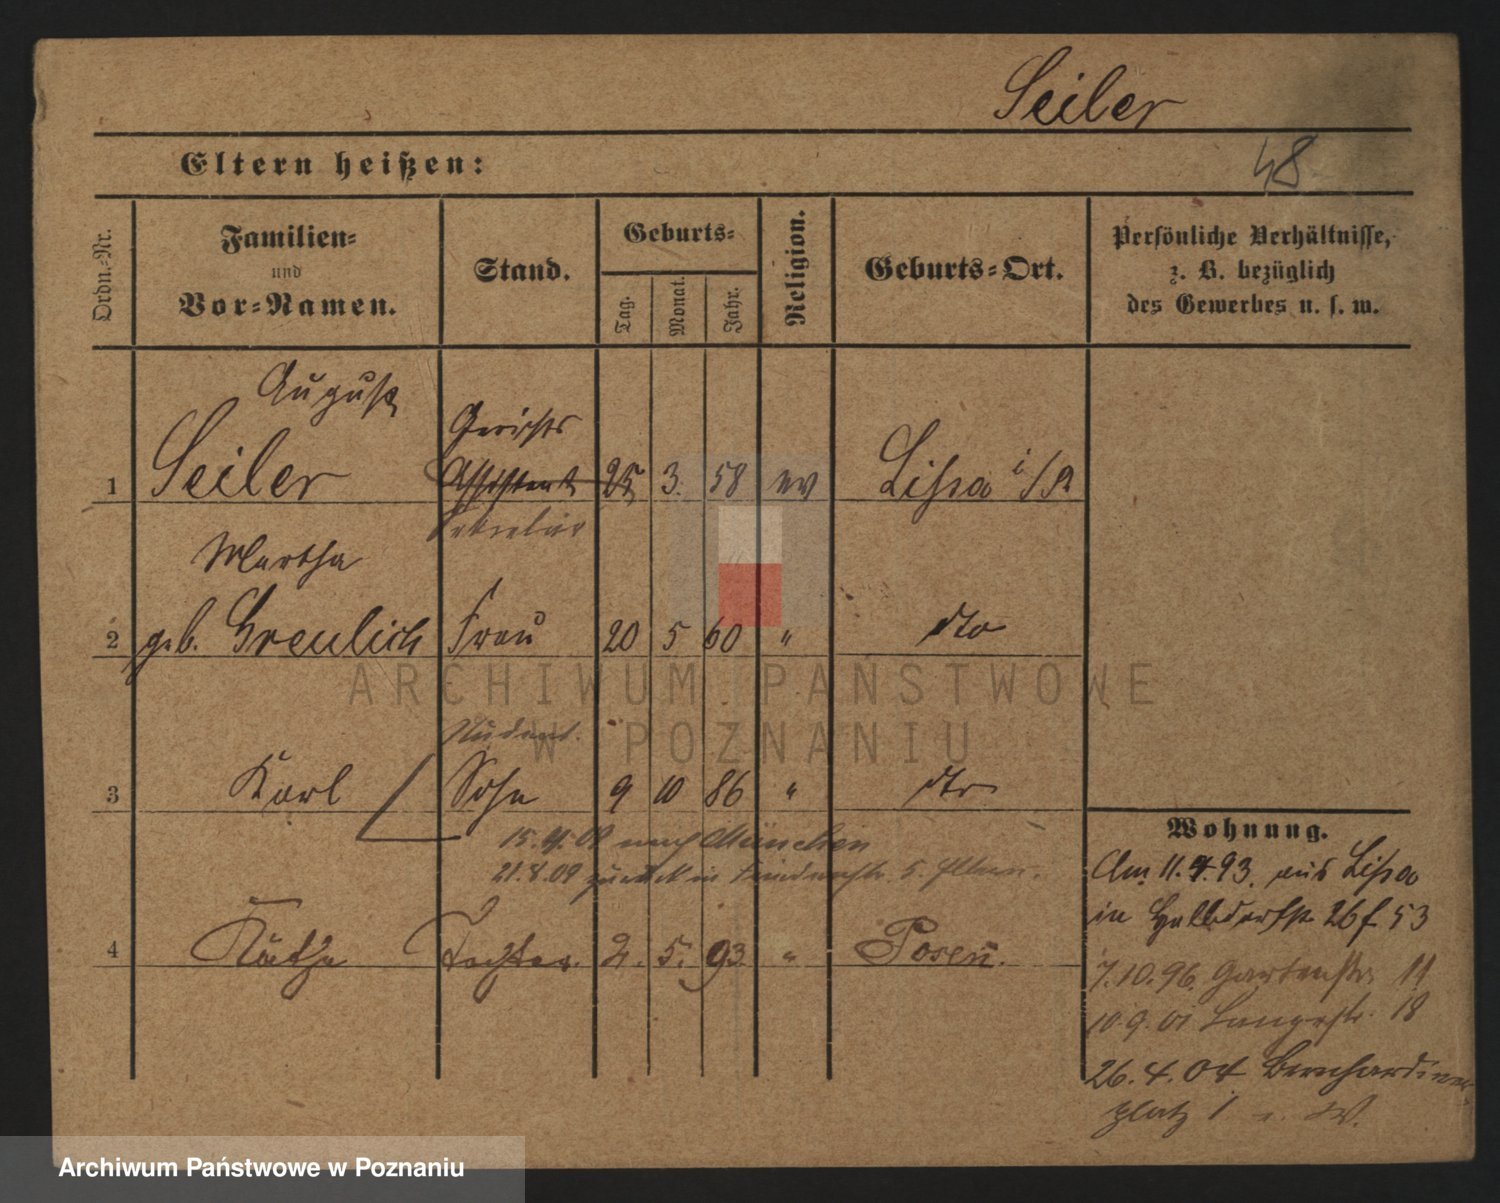 Seiler
48
Eltern heißen:
Ordn.-Nr.
Familien-
und
Vor-Namen.
Stand.
Geburts-
Tag.
Monat.
Jahr.
Religion.
Geburts-Ort.
Persönliche Verhältnisse,
z. B. bezüglich
des Gewerbes u. s. w.
August
1 Seiler Gerichts Assistent 25 3. 58 ev Lissa i/P
Sekretär
Martha
2 geb. Greulich Frau 20 5 60 " dto
Student.
3 Karl Sohn 9 10 86 " dto
15.4.09 nach München
21.8.09 zurück in 5. Eltern.
4 Käthe Tochter. 2. 5. 93 " Posen.
Wohnung.
Am 11.4.93. aus Lissa
in Halbdorfstr 26 f 53
7.10.96. Gartenstr. 11
10.9.01 Langestr. 18
26.4.04 Bernhardiner
platz 1
ARCHIWUM PAŃSTWOWE
W POZNANIU
Archiwum Państwowe w Poznaniu